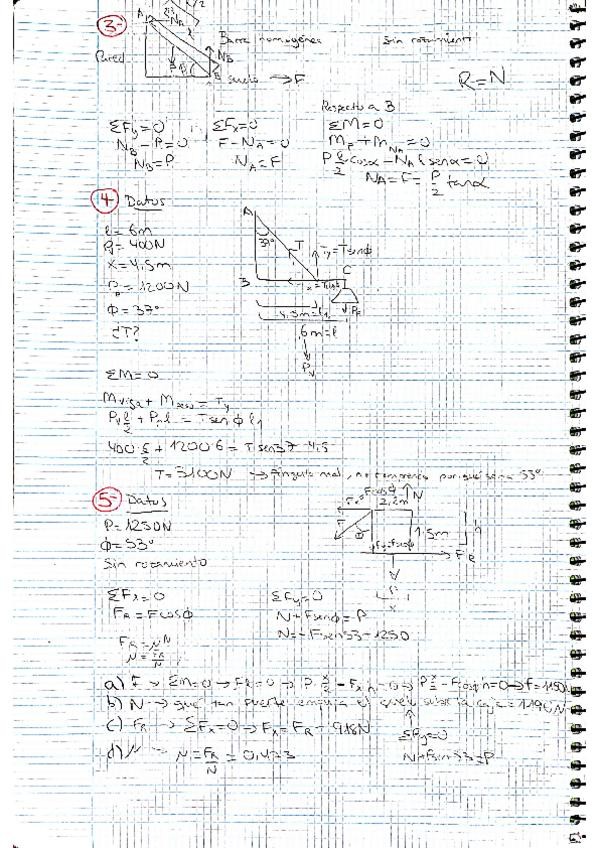 3-
A
N_A
l/2
Barra homogénea
Sin rozamiento
Pared
N_B
B
suelo → F
R = N
Respecto a B
ΣFy=0 ΣFx=0 ΣM=0
N_B - P = 0 F - N_A = 0 M_P + M_NA = 0
N_B = P N_A = F P l/2 cosα - N_A l senα = 0
N_A = F = P/2 tanα
4- Datos
l = 6m
P = 400N
x = 4,5m
P = 1200N
Φ = 37°
¿T?
A
37°
T
Ty = T senΦ
B
C
4.5m = l1
6m = l
P_v
ΣM = 0
Mviga + M = Ty
Pv l/2 + P l = T senΦ l1
400·6/2 + 1200·6 = T sen37·4.5
T = 3100N → Ángulo mal, no por que sería 53°
5- Datos
P = 1250N
Φ = 53°
Sin rozamiento
FcosΦ
N
2,2m
F
1.5m
F_R
P
ΣFx=0 ΣFy=0
F_R = FcosΦ N + FsenΦ = P
N = -Fsen53 - 1250
F_R = μN
a) F → ΣM=0 → FR=0 → P·x/2 - Fx·h=0 → P x/2 - FcosΦ h=0 → f=1150
b) N → que tan fuerte empuja el suelo sobre la caja = 1190N
c) F_R → ΣFx=0 → Fx = F_R = 918N
ΣFy=0
d) μ → μ = F_R/N = 0,473
N + Fsen53 = P